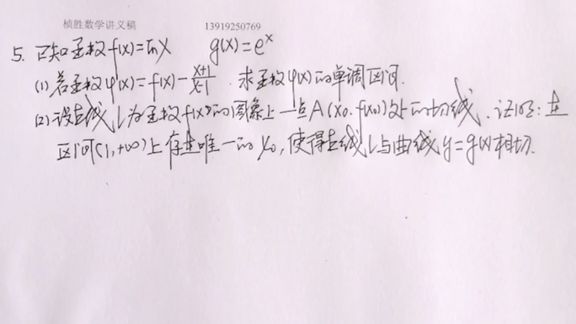 桢胜数学讲义稿 13919250769
5. 已知函数f(x)=lnx g(x)=e^x
(1)若函数φ(x)=f(x)-\frac{x+1}{x-1}，求函数φ(x)的单调区间.
(2)设直线l为函数f(x)的图象上一点A(x₀,f(x₀))处的切线.证明:在
区间(1,+∞)上存在唯一的x₀,使得直线l与曲线y=g(x)相切.